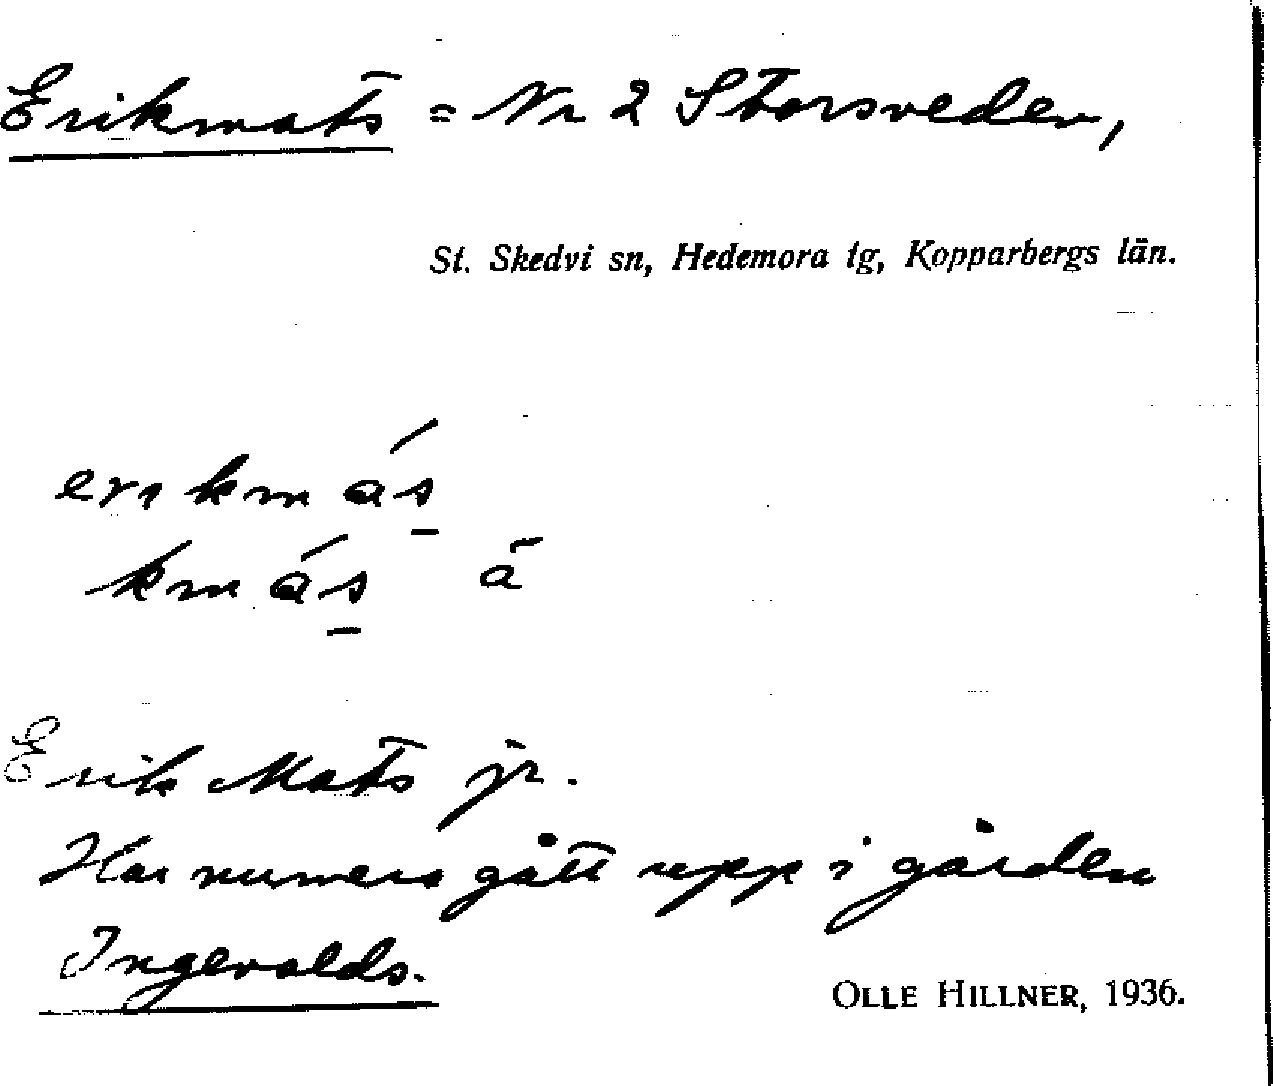 Erikmats = Nr 2 Storsveden,
St. Skedvi sn, Hedemora tg, Kopparbergs län.
erikmás
kmás ā
Erik Mats jr.
Har numera gått upp i gården
Ingevalds.
OLLE HILLNER, 1936.